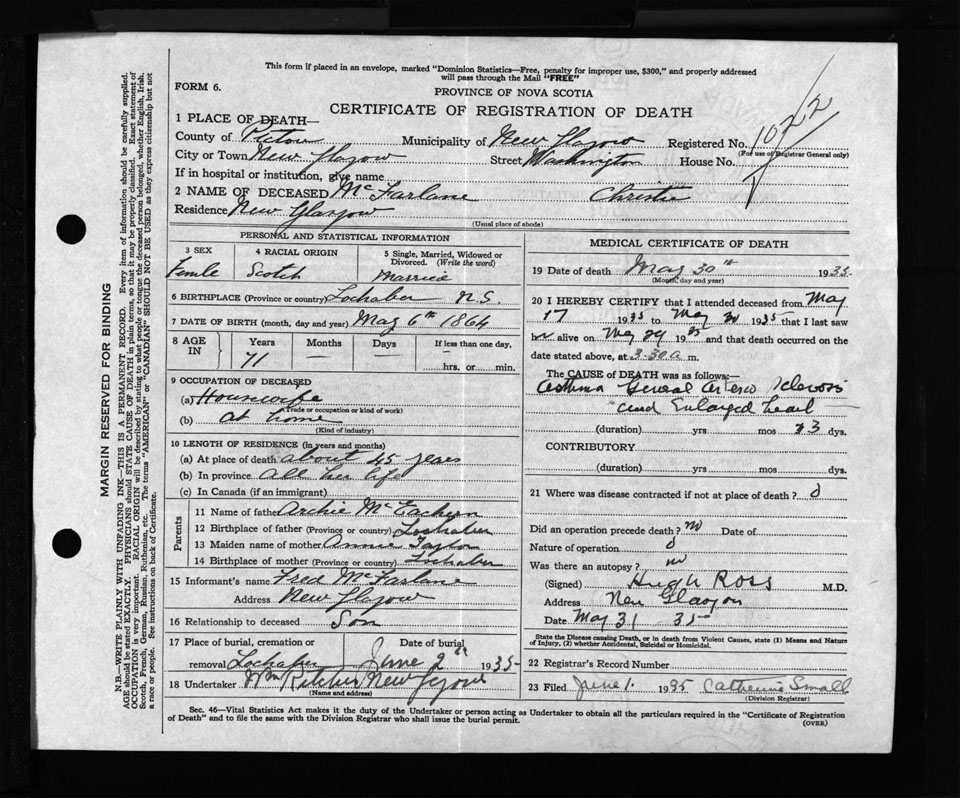 This form if placed in an envelope, marked "Dominion Statistics—Free, penalty for improper use, $300," and properly addressed
will pass through the Mail "FREE"
FORM 6.
PROVINCE OF NOVA SCOTIA
CERTIFICATE OF REGISTRATION OF DEATH
1022
1 PLACE OF DEATH—
County of Pictou Municipality of New Glasgow Registered No.
(For use of Registrar General only)
City or Town New Glasgow Street Washington House No.
If in hospital or institution, give name
2 NAME OF DECEASED McFarlane Christie
Residence New Glasgow
(Usual place of abode)
PERSONAL AND STATISTICAL INFORMATION
3 SEX 4 RACIAL ORIGIN 5 Single, Married, Widowed or
Divorced. (Write the word)
Femle Scotch Married
6 BIRTHPLACE (Province or country) Lochaber N.S.
7 DATE OF BIRTH (month, day and year) May 6th 1864
8 AGE IN Years Months Days If less than one day,
71 — — hrs. or min.
9 OCCUPATION OF DECEASED
(a) Housewife
(Trade or occupation or kind of work)
(b) at home
(Kind of industry)
10 LENGTH OF RESIDENCE (in years and months)
(a) At place of death about 45 years
(b) In province all her life
(c) In Canada (if an immigrant)
Parents
11 Name of father Archie McEachern
12 Birthplace of father (Province or country) Lochaber
13 Maiden name of mother Annie Taylor
14 Birthplace of mother (Province or country) Lochaber
15 Informant's name Fred McFarlane
Address New Glasgow
16 Relationship to deceased Son
17 Place of burial, cremation or Date of burial
removal Lochaber June 2 1935
18 Undertaker Wm New Glasgow
(Name and address)
MEDICAL CERTIFICATE OF DEATH
19 Date of death May 30th 1935
(Month, day and year)
20 I HEREBY CERTIFY that I attended deceased from May
17 1935 to May 30 1935 that I last saw
her alive on May 29 1935 and that death occurred on the
date stated above, at 3.30 a m.
The CAUSE OF DEATH was as follows:
asthma General arterio sclerosis
and Enlarged heart
(duration) yrs mos 13 dys.
CONTRIBUTORY
(duration) yrs. mos. dys.
21 Where was disease contracted if not at place of death? 0
Did an operation precede death? no Date of
Nature of operation 0
Was there an autopsy? no
(Signed) Hugh Ross M.D.
Address New Glasgow
Date May 31 35
State the Disease causing Death, or in death from Violent Causes, state (1) Means and Nature
of Injury, (2) whether Accidental, Suicidal or Homicidal.
22 Registrar's Record Number
23 Filed June 1. 1935 Catherine Small
(Division Registrar)
Sec. 46—Vital Statistics Act makes it the duty of the Undertaker or person acting as Undertaker to obtain all the particulars required in the "Certificate of Registration
of Death" and to file the same with the Division Registrar who shall issue the burial permit.
(OVER)
MARGIN RESERVED FOR BINDING
N.B.—WRITE PLAINLY WITH UNFADING INK—THIS IS A PERMANENT RECORD. Every item of information should be carefully supplied.
AGE should be stated EXACTLY. PHYSICIANS should STATE CAUSE OF DEATH in plain terms, so that it may be properly classified. Exact statement of
OCCUPATION is very important. RACIAL ORIGIN will be described by stating to what people or tongue the deceased person belonged, whether English, Irish,
Scotch, French, German, Russian, Ruthenian, etc. The terms "AMERICAN" or "CANADIAN" SHOULD NOT BE USED as they express citizenship but not
a race or people. See instructions on back of Certificate.